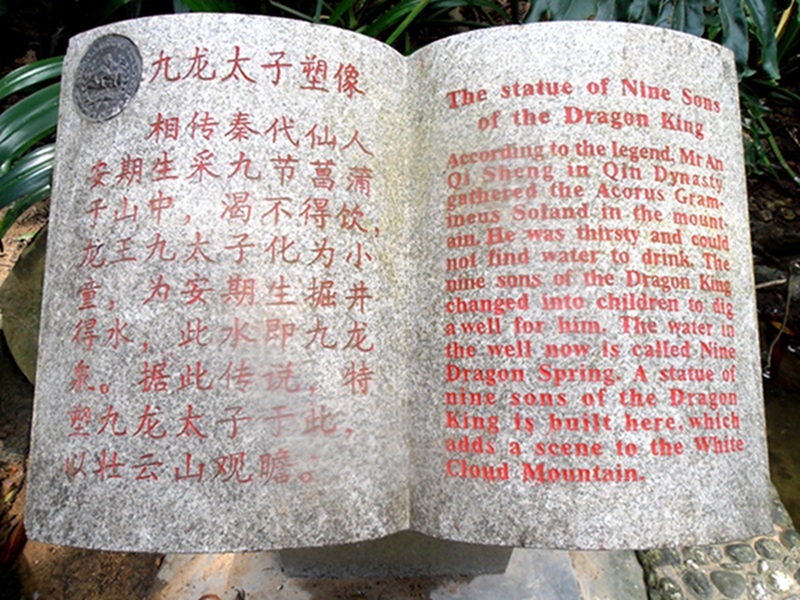 九龙太子塑像
相传秦代仙人
安期生采九节菖蒲
于山中，渴不得饮，
龙王九太子化为小
童，为安期生掘井
得水，此水即九龙
泉。据此传说，特
塑九龙太子于此，
以壮云山观瞻。
The statue of Nine Sons
of the Dragon King
According to the legend, Mr An
Qi Sheng in Qin Dynasty
gathered the Acorus Gram-
ineus Soland. in the mount-
ain. He was thirsty and could
not find water to drink. The
nine sons of the Dragon King
changed into children to dig
a well for him. The water in
the well now is called Nine
Dragon Spring. A statue of
nine sons of the Dragon
King is built here, which
adds a scene to the White
Cloud Mountain.